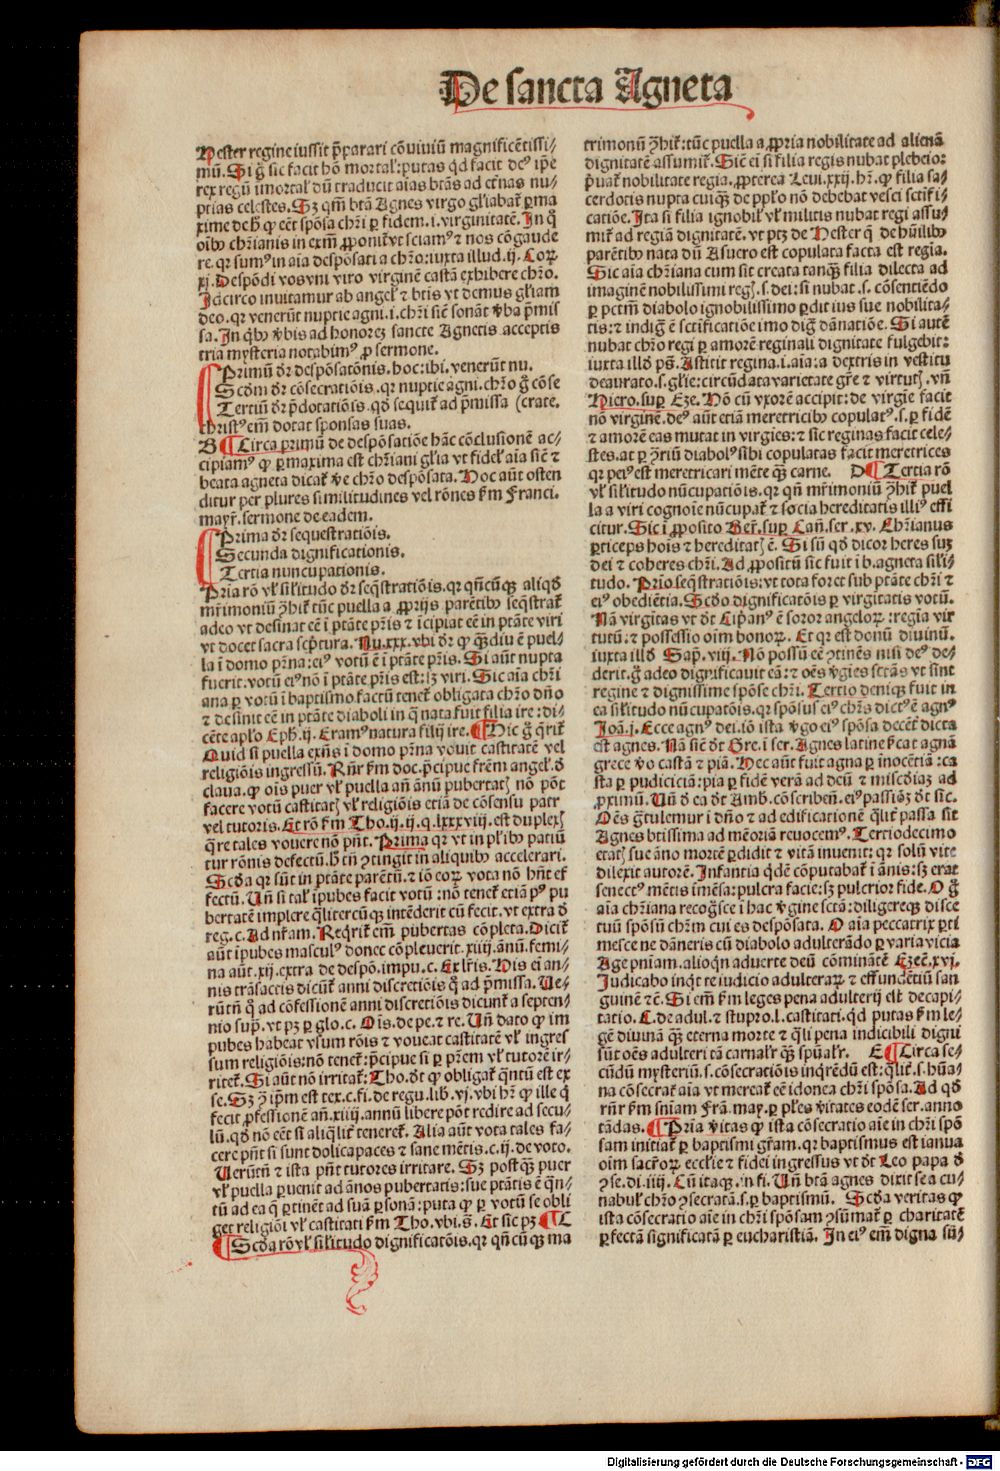 De sancta Agneta
Hester regine iussit p̄parari cōuiuiū magnificētissi⸗
mū. Si g̊ sic facit hō mortal: putas qd̄ facit deꝰ ip̄e
rex regū īmortal dū traducit aīas btās ad et̄nas nu⸗
ptias celestes. Sꝫ qm̄ btā Agnes virgo gl̄iabat̄ ꝑma
xime de hͦ ꝙ eēt spōsa chr̄i ꝑ fidem .i. virginitatē. In q̊
oībꝰ chr̄ianis in exm̄ ꝓponit̄ vt sciamꝰ ⁊ nos cōgaude
re. qꝛ sumꝰ in aīa despōsati a chr̄o: iuxta illud .ij. Coꝝ.
xj. Despōdi vos vni viro virginē castā exhibere chr̄o.
Idcirco inuitamur ab angel̄ ⁊ btīs vt demus gl̄iam
deo. qꝛ venerūt nuptie agni .i. chr̄i sic̄ sonāt v̄ba p̄mis
sa. In qͥbꝰ v̄bis ad honorēꝫ sancte Agnetis acceptis
tria mysteria notabimꝰ ꝓ sermone.
Primū dr̄ despōsatōnis. hoc: ibi. venerūt nu.
Scd̄m dr̄ cōsecratiōis. qꝛ nuptie agni. chr̄o g̊ cōse
Tertiū dr̄ p̄dotatiōis. qd̄ sequit̄ ad p̄missa (crate.
christꝰ em̄ dotat sponsas suas.
B Circa primū de despōsatiōe hāc cōclusionē ac⸗
cipiamꝰ ꝙ ꝑmaxima est chr̄iani gl̄ia vt fidel aīa sic̄ ⁊
beata agneta dicat̄ v̄e chr̄o despōsata. Hoc aūt osten
ditur per plures similitudines vel rōnes ẜm Franci.
mayr̄. sermone de eadem.
Prima dr̄ sequestratiōis.
Secunda dignificationis.
Tertia nuncupationis.
Pria rō vl̄ sil̄itudo dr̄ seq̄stratiōis. qꝛ qn̄cūqꝫ aliqd̄
mr̄imoniū ꝯ̄hit̄ tūc puella a ꝓprijs parētibꝰ seq̄strat̄
adeo vt desinat eē ī ptāte pr̄is ⁊ īcipiat eē in ptāte viri
vt docet sacra scp̄tura. Nu. xxx. vbi dr̄ ꝙ qͣ̄diu ē puel⸗
la ī domo pr̄na: eiꝰ votū ē ī ptāte pr̄is. Si aūt nupta
fuerit. votū eiꝰ nō ī ptāte pr̄is est: sꝫ viri. Sic aīa chr̄i
ana ꝑ votū ī baptismo factū tenet̄ obligata chr̄o dn̄o
⁊ desinit eē in ptāte diaboli in q̄ nata fuit filia ire: di⸗
cēte aplo Eph. ij. Eramꝰ natura filij ire. Hic g̊ q̄rit̄
Quid si puella exn̄s ī domo pr̄na vouit castitatē vel
religiōis ingressū. Rn̄r ẜm doc. p̄cipue frēm angel. d̄
claua. ꝙ oīs puer vl̄ puella an̄ ānū pubertatꝭ nō pōt
facere votū castitatꝭ vl̄ religiōis etiā de cōsensu patr
vel tutoris. Et rō ẜm Tho. ij. ij. q. lxxxviii. est duplex
q̄re tales vouere nō pn̄t. Prima qꝛ vt in plībꝰ patiū
tur rōnis defectū. hͦ tn̄ ꝯtingit in aliquibꝰ accelerari.
Scd̄a qꝛ sūt in ptāte parētū. ⁊ iō eoꝝ vota nō hn̄t ef
fectū. Un̄ si tal īpubes facit votū: nō tenet̄ etiā pꝰ pu
bertatē implere qͣlitercūqꝫ intēderit cū fecit. vt extra d̄
reg. c. Ad nr̄am. Reqͥrit̄ em̄ pubertas cōpleta. Dicit̄
aūt īpubes masculꝰ donec cōpleuerit .xiiij. ānū. femi⸗
na aūt .xij. extra de despō. impu. c. Ex lr̄is. His ei an⸗
nis trāsactis dicūt̄ anni discretiōis q̊ ad p̄missa. Ue⸗
rūtn̄ q̊ ad cōfessionē anni discretiōis dicunt̄ a septen⸗
nio sup̄. vt pꝫ ꝑ glo. c. Oīs. de pe. ⁊ re. Un̄ dato ꝙ im
pubes habeat vsum rōis ⁊ voueat castitatē vl̄ ingres
sum religiōis: nō tenet̄: p̄cipue si ꝑ pr̄em vl̄ tutorē ir⸗
ritet̄. Si aūt nō irritat̄: Tho. dt̄ ꝙ obligat̄ qͣntū est ex
se. Sꝫ ꝯ̄ ip̄m est tex. c. fi. de regu. lib. vj. vbi hr̄ ꝙ ille q̄
fecit ꝓfessionē an̄ .xiiij. annū libere pōt redire ad secu⸗
lū. qd̄ nō eēt si aliqͣlit̄ teneret̄. Alia aūt vota tales fa⸗
cere pn̄t si sunt doli capaces ⁊ sane mētis. c. ij. de voto.
Uerūtn̄ ⁊ ista pn̄t tutores irritare. Sꝫ postqͣ̄ puer
vl̄ puella ꝑuenit ad ānos pubertatis: sue ptātis ē qͣn⸗
tū ad ea q̄ ꝑtinēt ad suā ꝑsonā: puta ꝙ ꝑ votū se obli
get religiōi vl̄ castitati ẜm Tho. vbi .s. Et sic pꝫ C
Scd̄a rō vl̄ sil̄itudo dignificatōis. qꝛ qn̄ cūqꝫ ma
trimoniū ꝯ̄hit̄: tūc puella a ꝓpria nobilitate ad alienā
dignitatē assumit̄. Sic̄ ei si filia regis nubat plebeio:
p̄uat̄ nobilitate regia. ꝓpterea Leui. xxij. hr̄. ꝙ filia sa⸗
cerdotis nupta cuiqͣ̄ de pplo nō debebat vesci sctīfi
catiōe. Ita si filia ignobil vl̄ militis nubat regi assu⸗
mit̄ ad regiā dignitatē. vt ptꝫ de Hester q̄ de hūilibꝰ
parētibꝰ nata dū Asuero est copulata facta est regia.
Sic aīa chr̄iana cum sit creata tanqͣ̄ filia dilecta ad
imaginē nobilissimi regꝭ .s. dei: si nubat .s. cōsentiēdo
ꝑ pctm̄ diabolo ignobilissimo ꝑdit ius sue nobilita⸗
tis: ⁊ indiḡ ē sctificatiōe imo diḡ dānatiōe. Si autē
nubat chr̄o regi ꝑ amorē reginali dignitate fulgebit:
iuxta illd̄ ps̄. Astitit regina .i. aīa: a dextris in vestitu
deaurato .s. gl̄ie: circūdata varietate gr̄e ⁊ virtutꝭ. vn̄
Hiero. suꝑ Eze. Hō cū vxorē accipit: de virgīe facit
nō virginē. deꝰ aūt etiā meretricibꝰ copulatꝰ .s. ꝑ fidē
⁊ amorē eas mutat in virgīes: ⁊ sic reginas facit cele⸗
stes. at ꝑ ꝯ̄riū diabolꝰ sibi copulatas facit meretrices
qꝛ peiꝰ est meretricari mēte qͣ̄ carne. D Tertia rō
vl̄ sil̄itudo nūcupatiōis. qꝛ qn̄ mr̄imoniū ꝯ̄hit̄ puel
la a viri cognoīe nūcupat̄ ⁊ socia hereditatis illiꝰ effi
citur. Sic ī ꝓposito Ber̄. suꝑ Can̄. ser. xv. Chr̄ianus
ꝑticeps hoīs ⁊ hereditatꝭ ē. Si sū qd̄ dicor heres suꝫ
dei ⁊ coheres chr̄i. Ad ꝓpositū sic fuit ī b. agneta sil̄i⸗
tudo. Prīo seq̄strationis: vt tota foret sub ptāte chr̄i ⁊
eiꝰ obediētia. Scd̄o dignificatōis ꝑ virgitatis votū.
Nā virgitas vt dt̄ Cip̄anꝰ ē soror angeloꝝ: regia vir
tutū: ⁊ possessio oīm honoꝝ. Et qꝛ est donū diuinū.
iuxta illd̄ Sap̄. viij. Nō possū eē ꝯtinēs nisi deꝰ de⸗
derit. g̊ adeo dignificauit eā: ⁊ oēs v̄gīes sctās vt sint
regine ⁊ dignissime spōse chr̄i. Tertio deniqꝫ fuit in
ea sil̄itudo nūcupatōis. qꝛ spōsus eiꝰ chr̄s dictꝰ ē agnꝰ
Joā. j. Ecce agnꝰ dei. iō ista v̄go eiꝰ spōsa decēt̄ dicta
est agnes. Nā sic̄ dt̄ Gre. ī ser. Agnes latine ẜcat agnā
grece v̄o castā ⁊ piā. Hec aūt fuit agna ꝑ inocētiā: ca
sta ꝑ pudiciciā: pia ꝑ fidē verā ad deū ⁊ misc̄diaꝫ ad
ꝓximū. Un̄ d̄ ea dt̄ Amb. cōscribēn̄. eiꝰ passiōꝫ dt̄ sīc.
Oēs g̊ tulemur ī dn̄o ⁊ ad edificationē qͣlit̄ passa sit
Agnes btissima ad mēoriā reuocemꝰ. Tertiodecimo
etatꝭ sue āno mortē ꝑdidit ⁊ vitā inuenit: qꝛ solū vite
dilexit autorē. Infantia qͥdē cōputabat̄ ī ānis: sꝫ erat
senectꝰ mētis īmēsa: pulcra facie: sꝫ pulcrior fide. O g̊
aīa chr̄iana recog̊sce ī hac v̄gine sctā: diligereqꝫ disce
tuū spōsū chr̄m cui es despōsata. O aīa peccatrix ꝑti
mesce ne dāneris cū diabolo adulterādo ꝑ varia vicia
Age pn̄iam. alioqͥn aduerte deū cōminātē Ezec̄. xvj.
Judicabo inqͥt te iudicio adulteraꝝ ⁊ effundētiū san
guinē ⁊c̄. Si em̄ ẜm leges pena adulterij est decapi⸗
tatio. C. de adul. ⁊ stupro. l. castitati. qd̄ putas ẜm le⸗
gē diuinā qͣ̄ eterna morte ⁊ qͣli pena indicibili digni
sūt oēs adulteri tā carnal̄r qͣ̄ spūal̄r. E Circa se⸗
cūdū mysteriū .s. cōsecratiōis inqͥrēdū est: qͣlit̄ .s. hūa⸗
na cōsecrat̄ aīa vt mereat̄ eē idonea chr̄i spōsa. Ad qd̄
rn̄r ẜm sn̄iam Frā. may. ꝑ ples v̄itates eodē ser. anno
tādas. Pria v̄itas ꝙ ista cōsecratio aīe in chr̄i spō
sam initiat̄ ꝑ baptismi gr̄am. qꝛ baptismus est ianua
oīm sacr̄oꝝ ecclīe ⁊ fidei ingressus vt dt̄ Leo papa d̄
ꝯse. di. iiij. Cū itaqꝫ. in fi. Un̄ btā agnes dixit se a cu⸗
nabul chr̄o ꝯsecratā .s. ꝑ baptismū. Scd̄a veritas ꝙ
ista cōsecratio aīe in chr̄i spōsam ꝯsūmat̄ ꝑ charitatē
ꝑfectā significatā ꝑ eucharistiā. In eiꝰ em̄ digna sū⸗
Digitalisierung gefördert durch die Deutsche Forschungsgemeinschaft - DFG